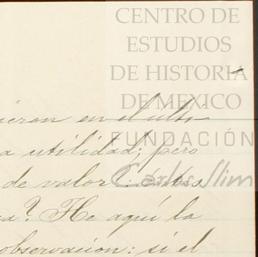 CENTRO DE
ESTUDIOS
DE HISTORIA
DE MEXICO
FUNDACIÓN
Carlos Slim
en el últi-
a utilidad; pero
de valor
? He aquí la
observacion: si el